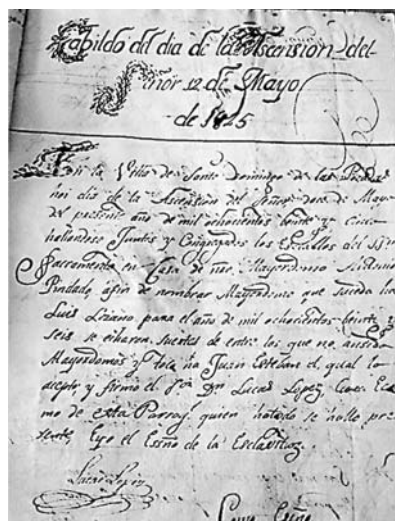 Cabildo del dia de la Ascension del
Señor 12 de Mayo
de 1825
En la Villa de Santo Domingo de las
hoi dia de la Ascension del Señor doce de Mayo
del presente año de mil ochocientos beinte y cinco
hallandose Juntos y Congregados los Esclabos del SSmo
Sacramento en Casa de nro Mayordomo
Pindado, afin de nombrar Mayordomo que suseda ha
Luis Lozano, para el año de mil ochocientos beinte y
seis se echaron suertes de entre los que no
Mayordomos y toco ha Juan Esteban el qual lo
acepto, y firmo el Sor Dn Lucas Lopez, Cura
mo de esta Parroql quien ha todo se hallo pre
sente, Eyo el Essno de la Esclavitud.
Lucas Lopez
Como Essno